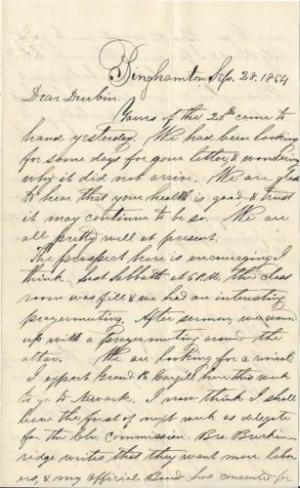 Binghamton Sep. 28. 1864
Dear Durbin.
Yours of the 25th came to
hand yesterday. We had been looking
for some days for your letter & wondering
why it did not arrive. We are glad
to hear that your health is good & trust
it may continue to be so. We are
all pretty well at present.
The prospect here is encouraging I
think. Last Sabbath at 6 P.M. the class
room was full & we had an interesting
prayermeeting. After sermon, we wound
up with a prayermeeting around the
altar. We are looking for a revival.
I expect Grand Pa Cargill here this week
to go to Newark. I now think I shall
leave the first of next week as delegate
for the Chr. commission. Bro. Breckin-
ridge writes that they want more labor
ers, & my official Board has consented for